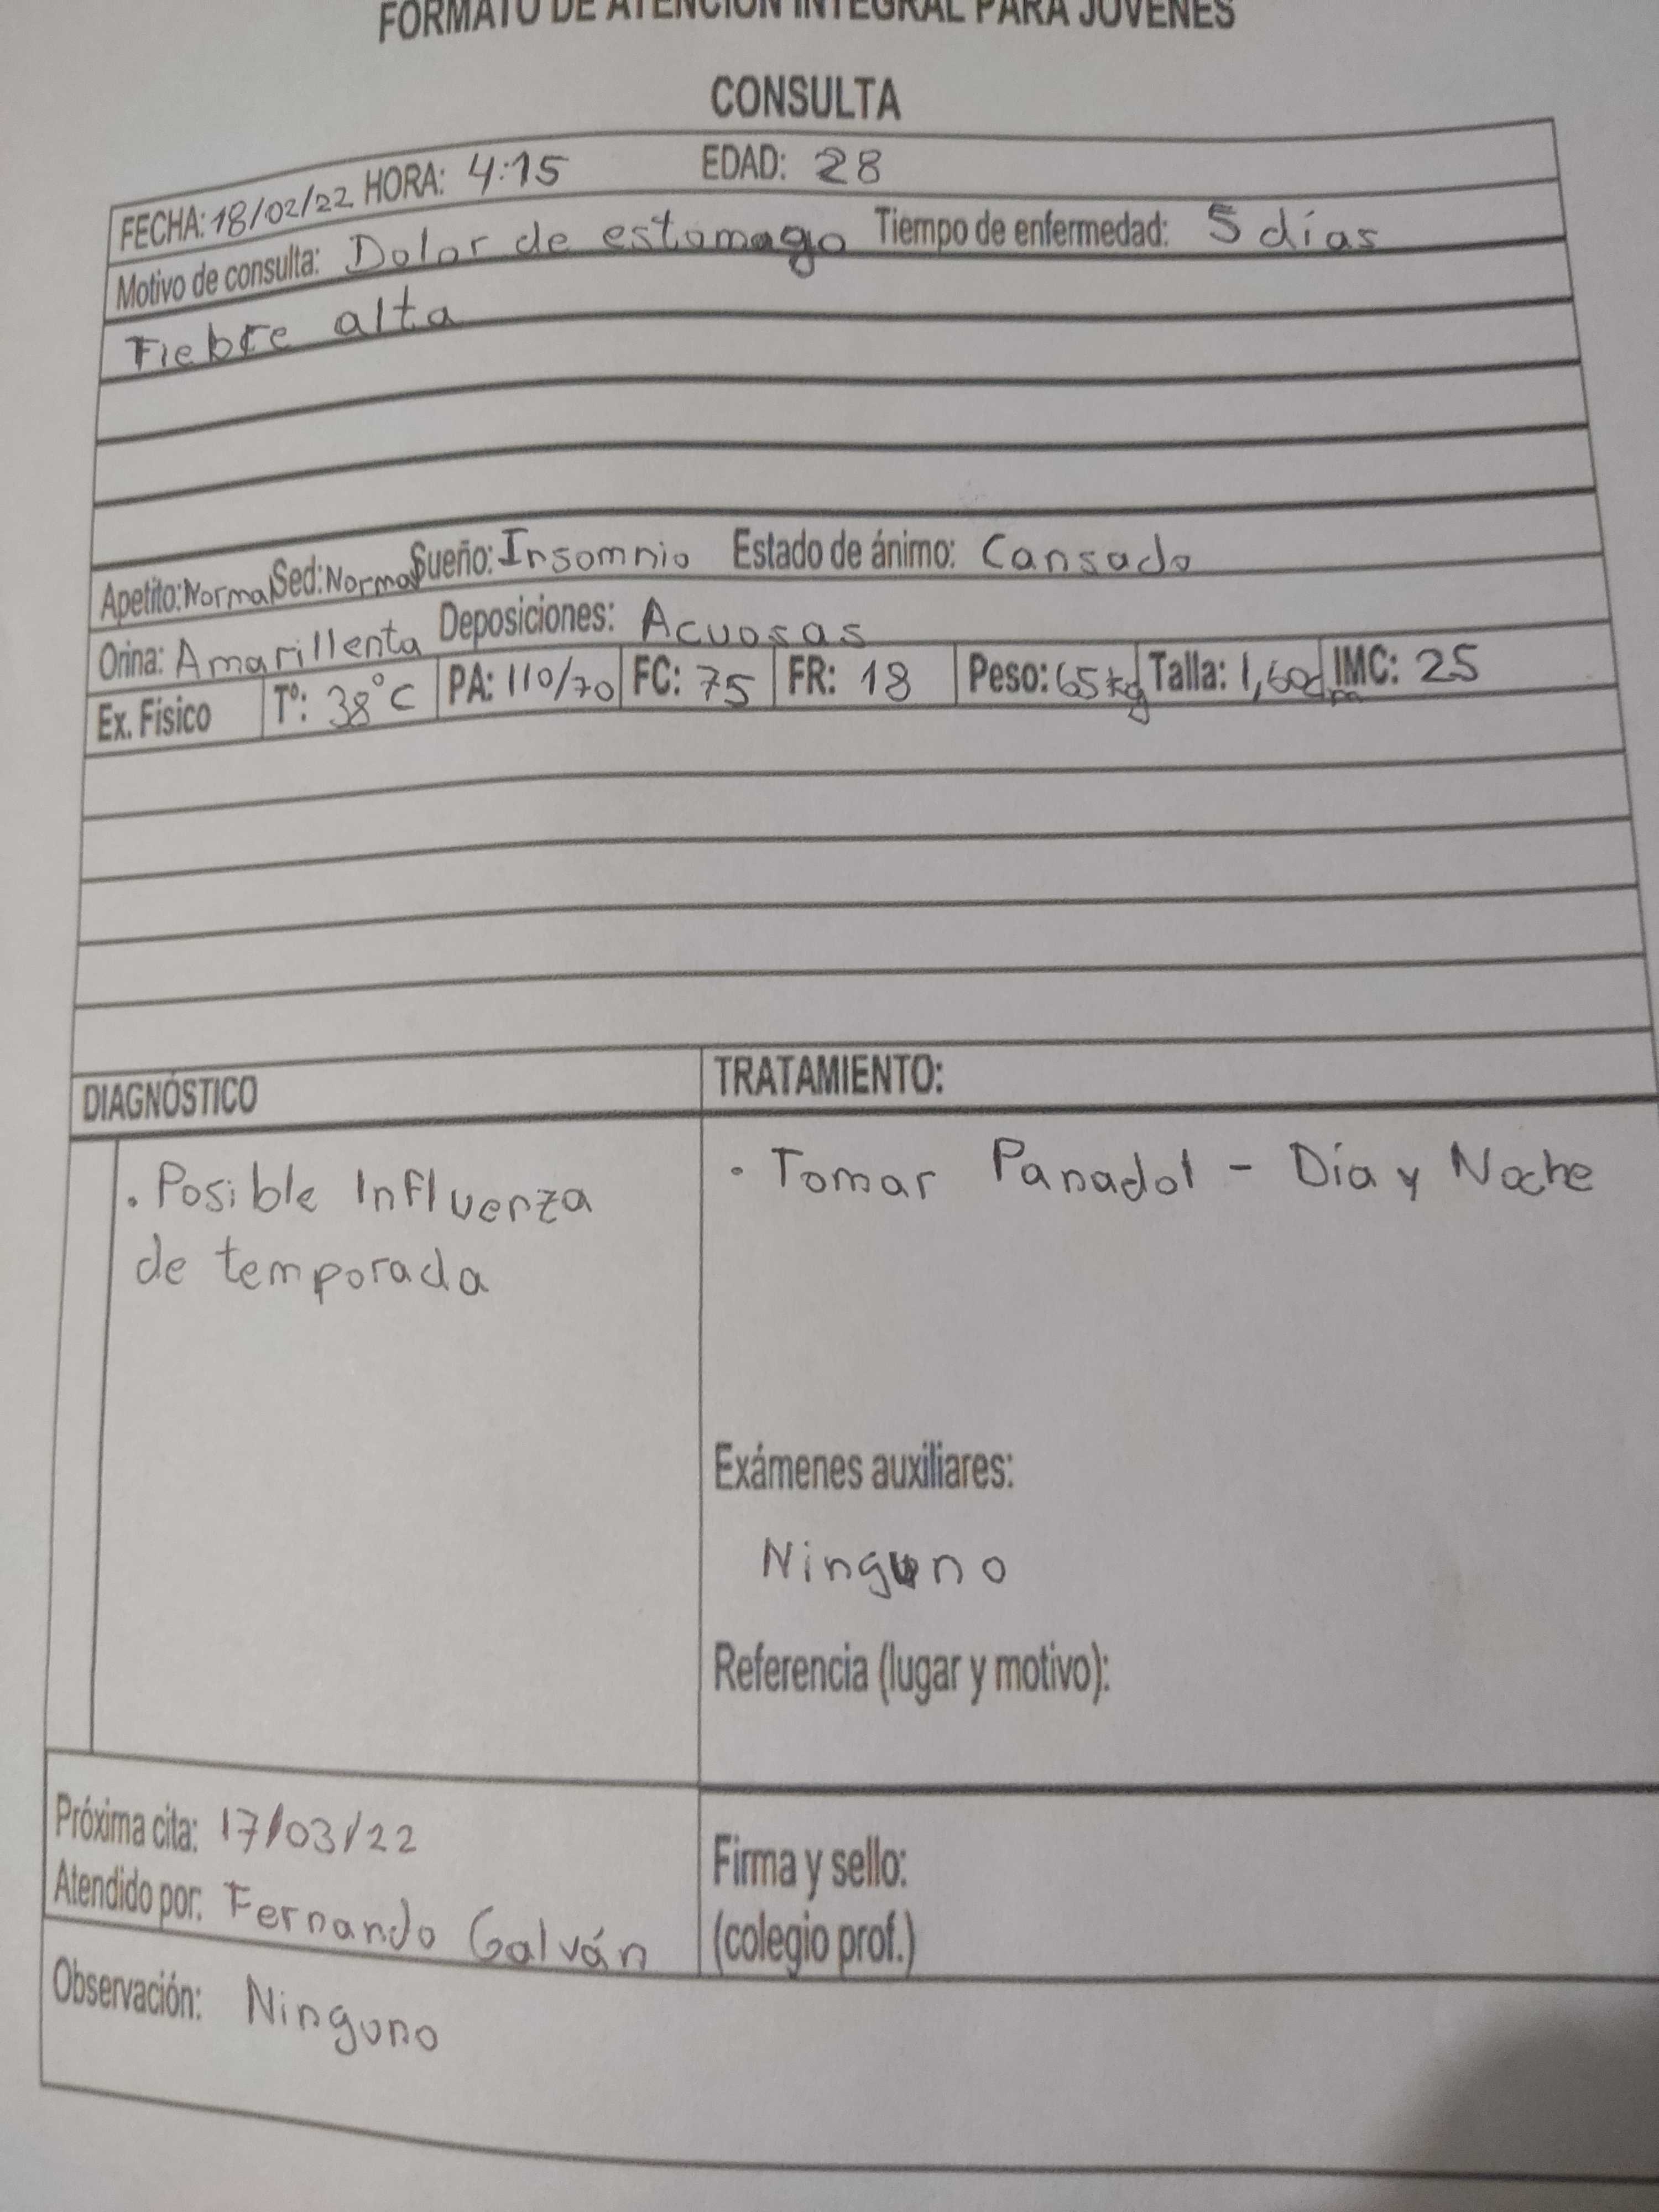 FORMATO DE ATENCIÓN INTEGRAL PARA JÓVENES
CONSULTA
FECHA: 18/02/22 HORA: 4:15 EDAD: 28
Motivo de consulta: Dolor de estomago Tiempo de enfermedad: 5 días
Fiebre alta
Apetito: Normal Sed: Normal Sueño: Insomnio Estado de ánimo: Cansado
Orina: Amarillenta Deposiciones: Acuosas
Ex. Físico Tº: 38°C PA: 110/70 FC: 75 FR: 18 Peso: 65 kg Talla: 1,60cm IMC: 25
DIAGNÓSTICO TRATAMIENTO:
. Posible Influenza · Tomar Panadol - Día y Noche
de temporada
Exámenes auxiliares:
Ninguno
Referencia (lugar y motivo):
Próxima cita: 17/03/22
Atendido por: Fernando Galván
Firma y sello:
(colegio prof.)
Observación: Ninguno